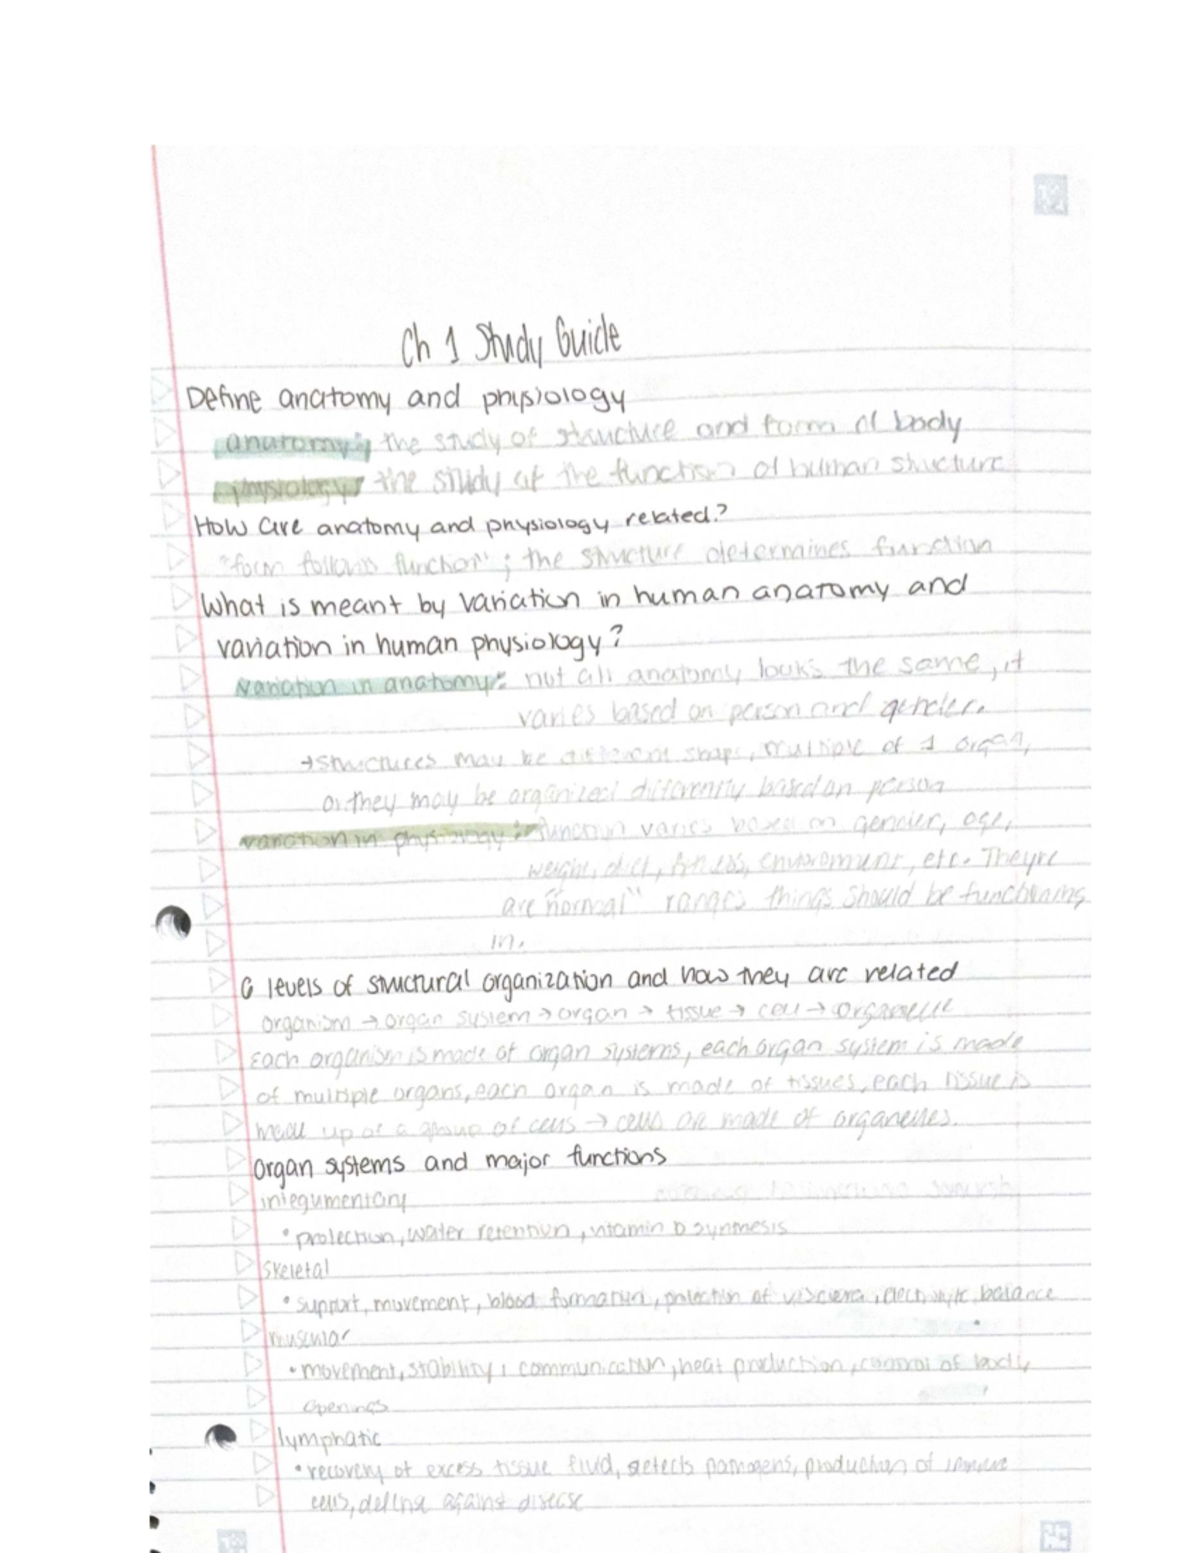 Ch 1 Study Guide
Define anatomy and physiology
anatomy: the study of structure and form of body
physiology: the study of the function of human structure
How are anatomy and physiology related?
"form follows function"; the structure determines function
What is meant by variation in human anatomy and
variation in human physiology?
variation in anatomy: not all anatomy looks the same, it
varies based on person and gender.
→structures may be different shape, multiple of 1 organ,
or they may be organized differently based on person
variation in physiology: function varies based on gender, age,
weight, diet, fitness, environment, etc. Theyre
are "normal" ranges things should be functioning
in.
6 levels of structural organization and how they are related
organism → organ system → organ → tissue → cell → organelle
Each organism is made of organ systems, each organ system is made
of multiple organs, each organ is made of tissues, each tissue is
made up of a group of cells → cells are made of organelles.
Organ systems and major functions
integumentary
• protection, water retention, vitamin D synthesis
skeletal
• support, movement, blood formation, protection of viscera, electrolyte balance
muscular
• movement, stability, communication, heat production, control of body
openings
lymphatic
• recovery of excess tissue fluid, detects pathogens, production of immune
cells, against disease